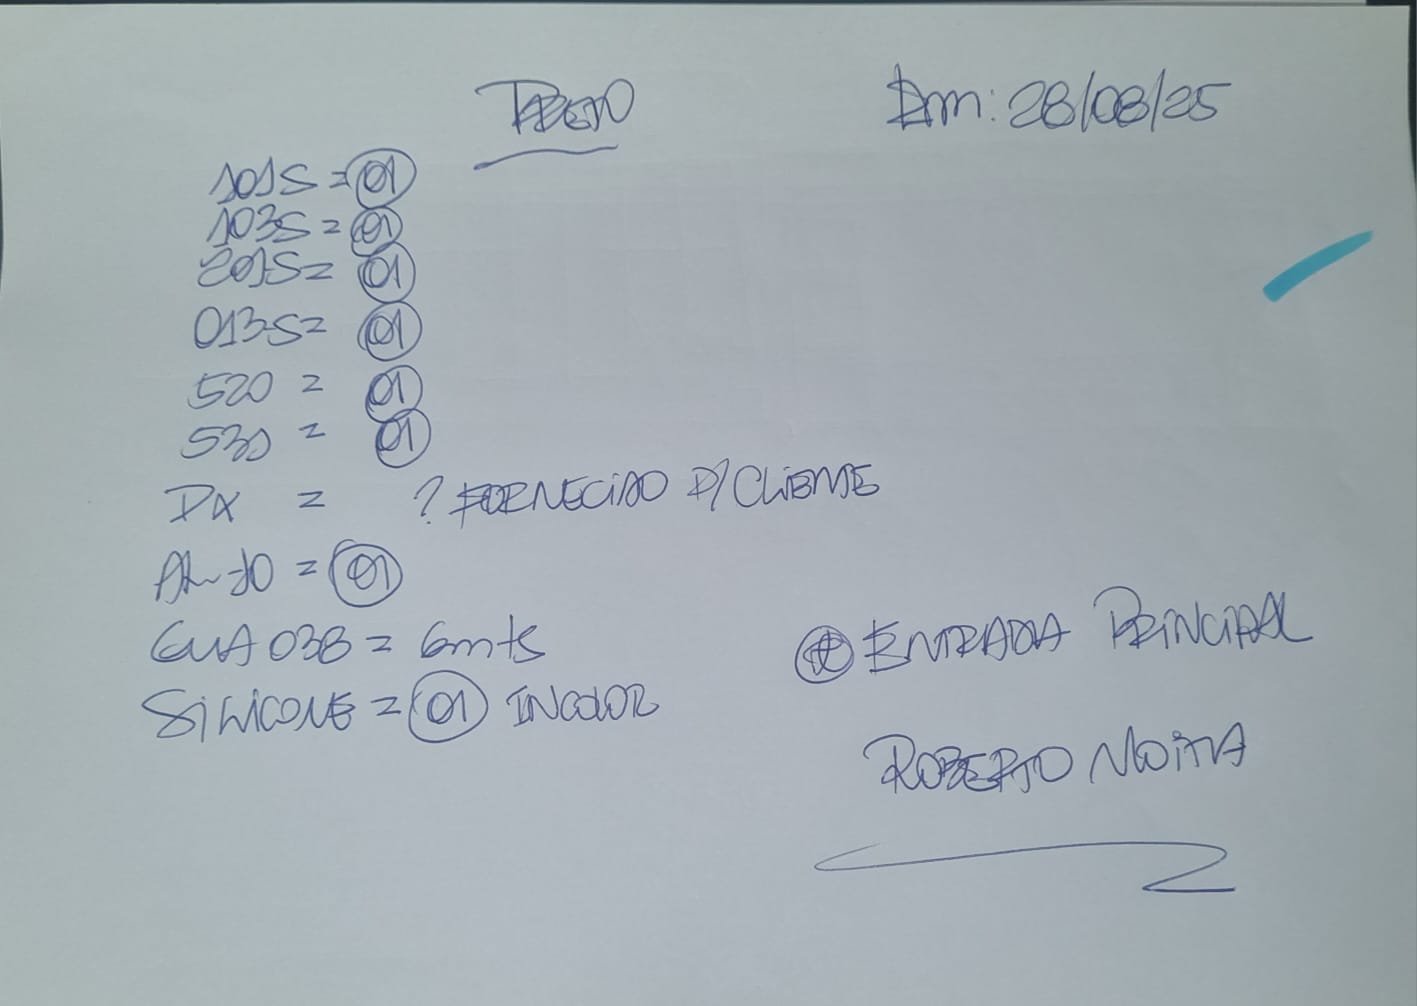 PRETO
Em: 28/08/25
101S = 01
103S = 01
201S = 01
013S = 01
520 = 01
530 = 01
PX = ? FORNECIDO P/ CLIENTE
AL-10 = 01
GUA 038 = 6mts
SILICONE = 01 INCOLOR
ENTRADA PRINCIPAL
ROBERTO MOITA